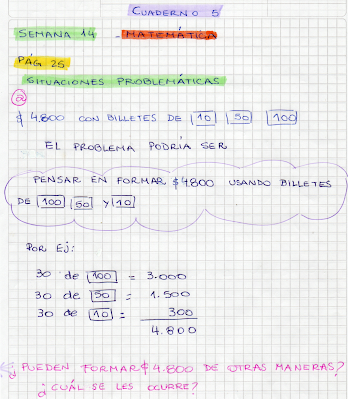 CUADERNO 5
SEMANA 14 - MATEMÁTICA
PÁG 25
SITUACIONES PROBLEMÁTICAS
a
$ 4.800 CON BILLETES DE 10 50 100
EL PROBLEMA PODRÍA SER
PENSAR EN FORMAR $4.800 USANDO BILLETES
DE 100 50 Y 10
POR EJ:
30 de 100 = 3.000
30 de 50 = 1.500
30 de 10 = 300
4.800
¿PUEDEN FORMAR $ 4.800 DE OTRAS MANERAS?
¿CUÁL SE LES OCURRE?